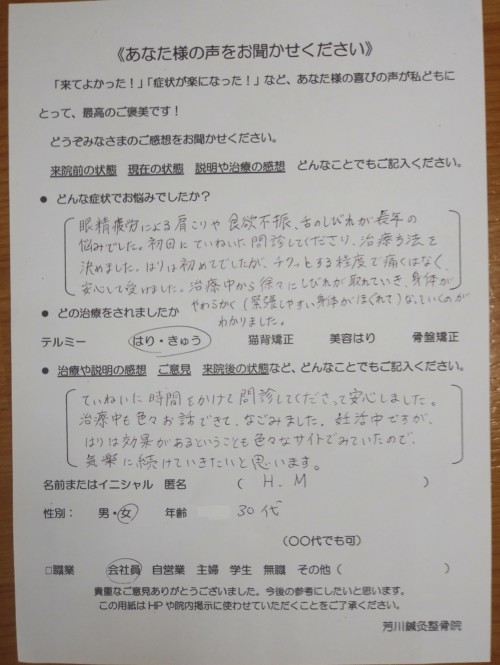 《あなた様の声をお聞かせください》
「来てよかった!」「症状が楽になった!」など、あなた様の喜びの声が私どもに
とって、最高のご褒美です!
どうぞみなさまのご感想をお聞かせください。
来院前の状態 現在の状態 説明や治療の感想 どんなことでもご記入ください。
● どんな症状でお悩みでしたか?
眼精疲労による肩こりや食欲不振、舌のしびれが長年の
悩みでした。初回にていねいた問診してくださり、治療方法を
決めました。はりは初めてでしたが、チクッとする程度で痛くはなく、
安心して受けました。治療中から徐々にしびれが取れていき、身体が
やわらかく(緊張しやすい身体がほぐれて)なっていくのが
わかりました。
● どの治療をされましたか
テルミー はり・きゅう 猫背矯正 美容はり 骨盤矯正
● 治療や説明の感想 ご意見 来院後の状態など、どんなことでもご記入ください。
ていねいに時間をかけて問診してくださって安心しました。
治療中も色々お話できて、なごみました。妊活中ですが、
はりは効果があるということも色々なサイトでみていたので、
気楽に続けていきたいと思います。
名前またはイニシャル 匿名 ( H. M )
性別: 男・女 年齢 30代
(〇〇代でも可)
□職業 会社員 自営業 主婦 学生 無職 その他( )
貴重なご意見ありがとうございました。今後の参考にしたいと思います。
この用紙はHPや院内掲示に使わせていただくことをご了承ください。
芳川鍼灸整骨院